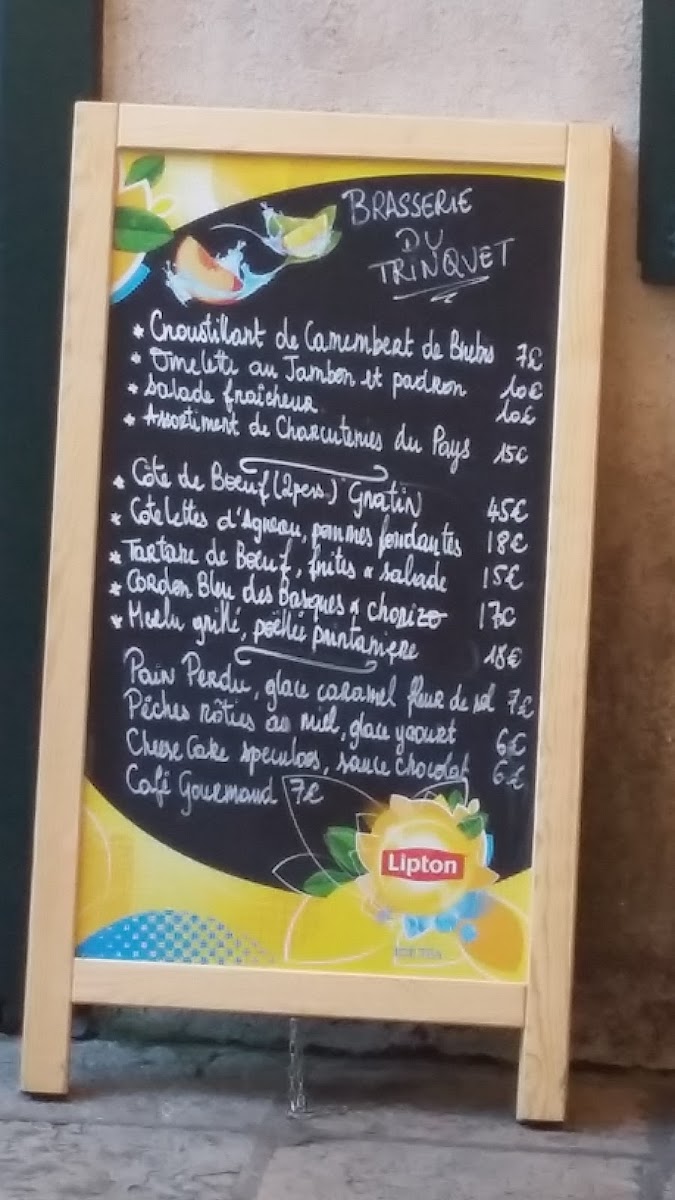 BRASSERIE
DU
TRINQUET
* Croustillant de Camembert de Brebis 7€
* Omelette au Jambon et padron 10€
* Salade fraîcheur 10€
* Assortiment de Charcuteries du Pays 15€
* Côte de Boeuf (2pers.) Gratin 45€
* Côtelettes d'Agneau, pommes fondantes 18€
* Tartare de Boeuf, frites & salade 15€
* Cordon Bleu des Basques & chorizo 17€
* Merlu grillé, poëllée printanière 18€
Pain Perdu, glace caramel fleur de sel 7€
Pêches rôties au miel, glace yaourt 6€
Cheese Cake speculoos, sauce chocolat 6€
Café Gourmand 7€
Lipton
ICE TEA